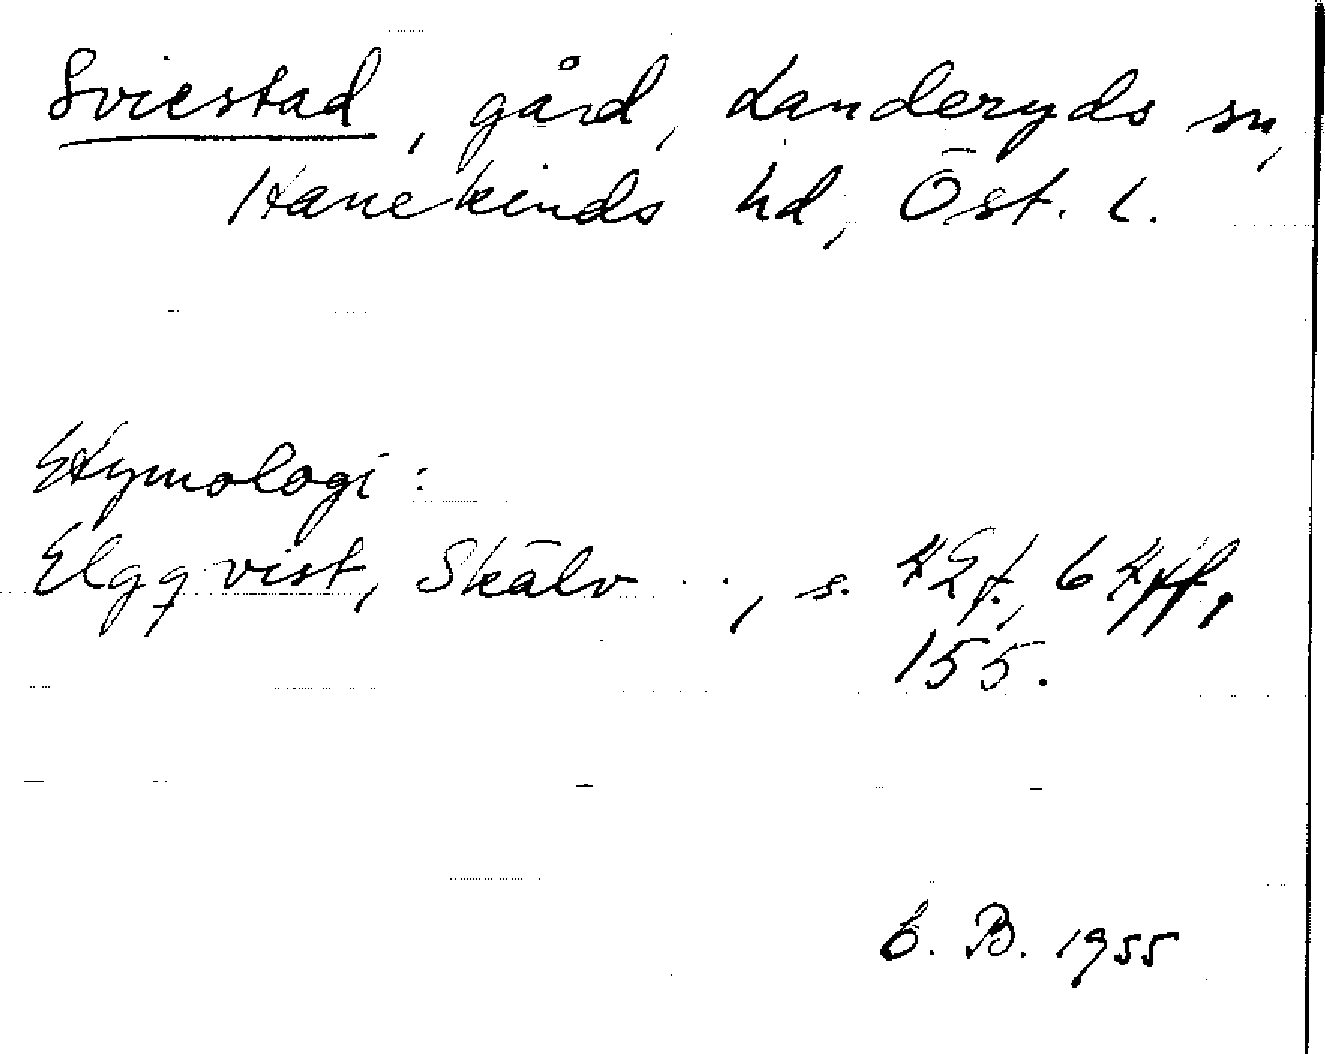 Sviestad, gård, Landeryds sn,
Hanekinds hd, Öst. l.
Etymologi:
Elgqvist, Skälv ..., s. 42f., 64ff,
155.
E. B. 1955